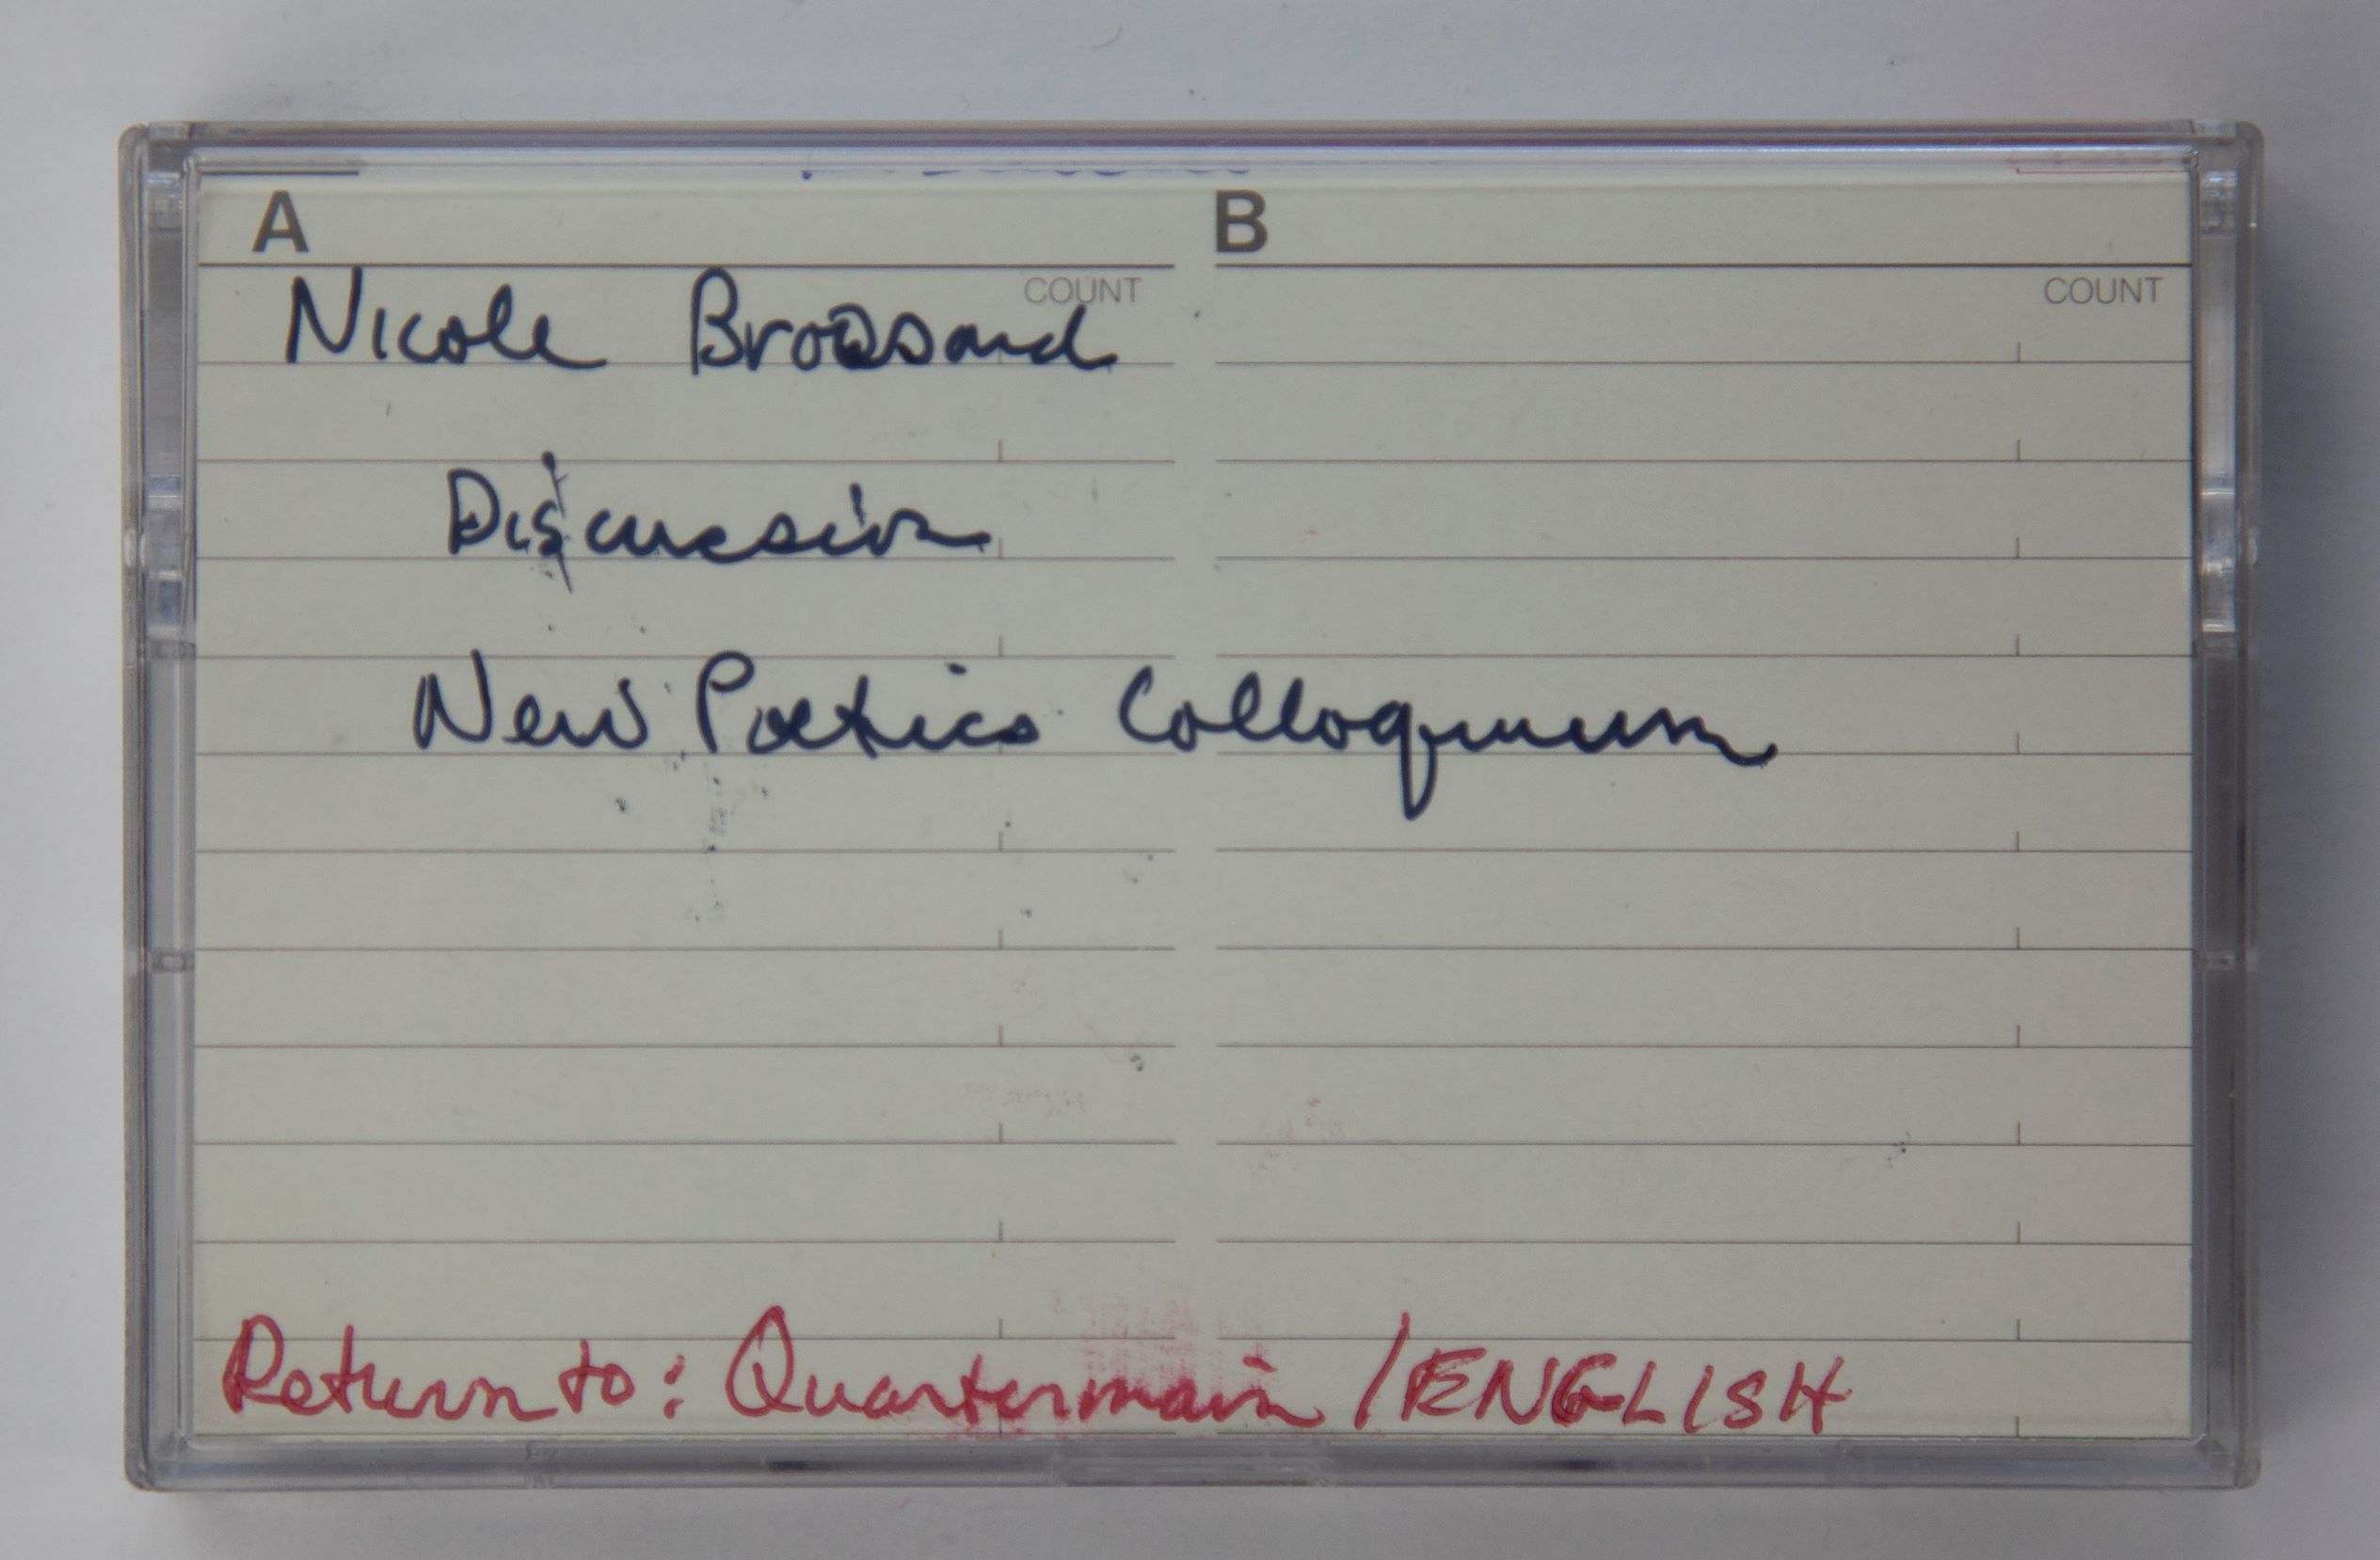 A B
COUNT COUNT
Nicole Brossard
Discussion
New Poetics Colloquium
Return to: Quartermain / ENGLISH